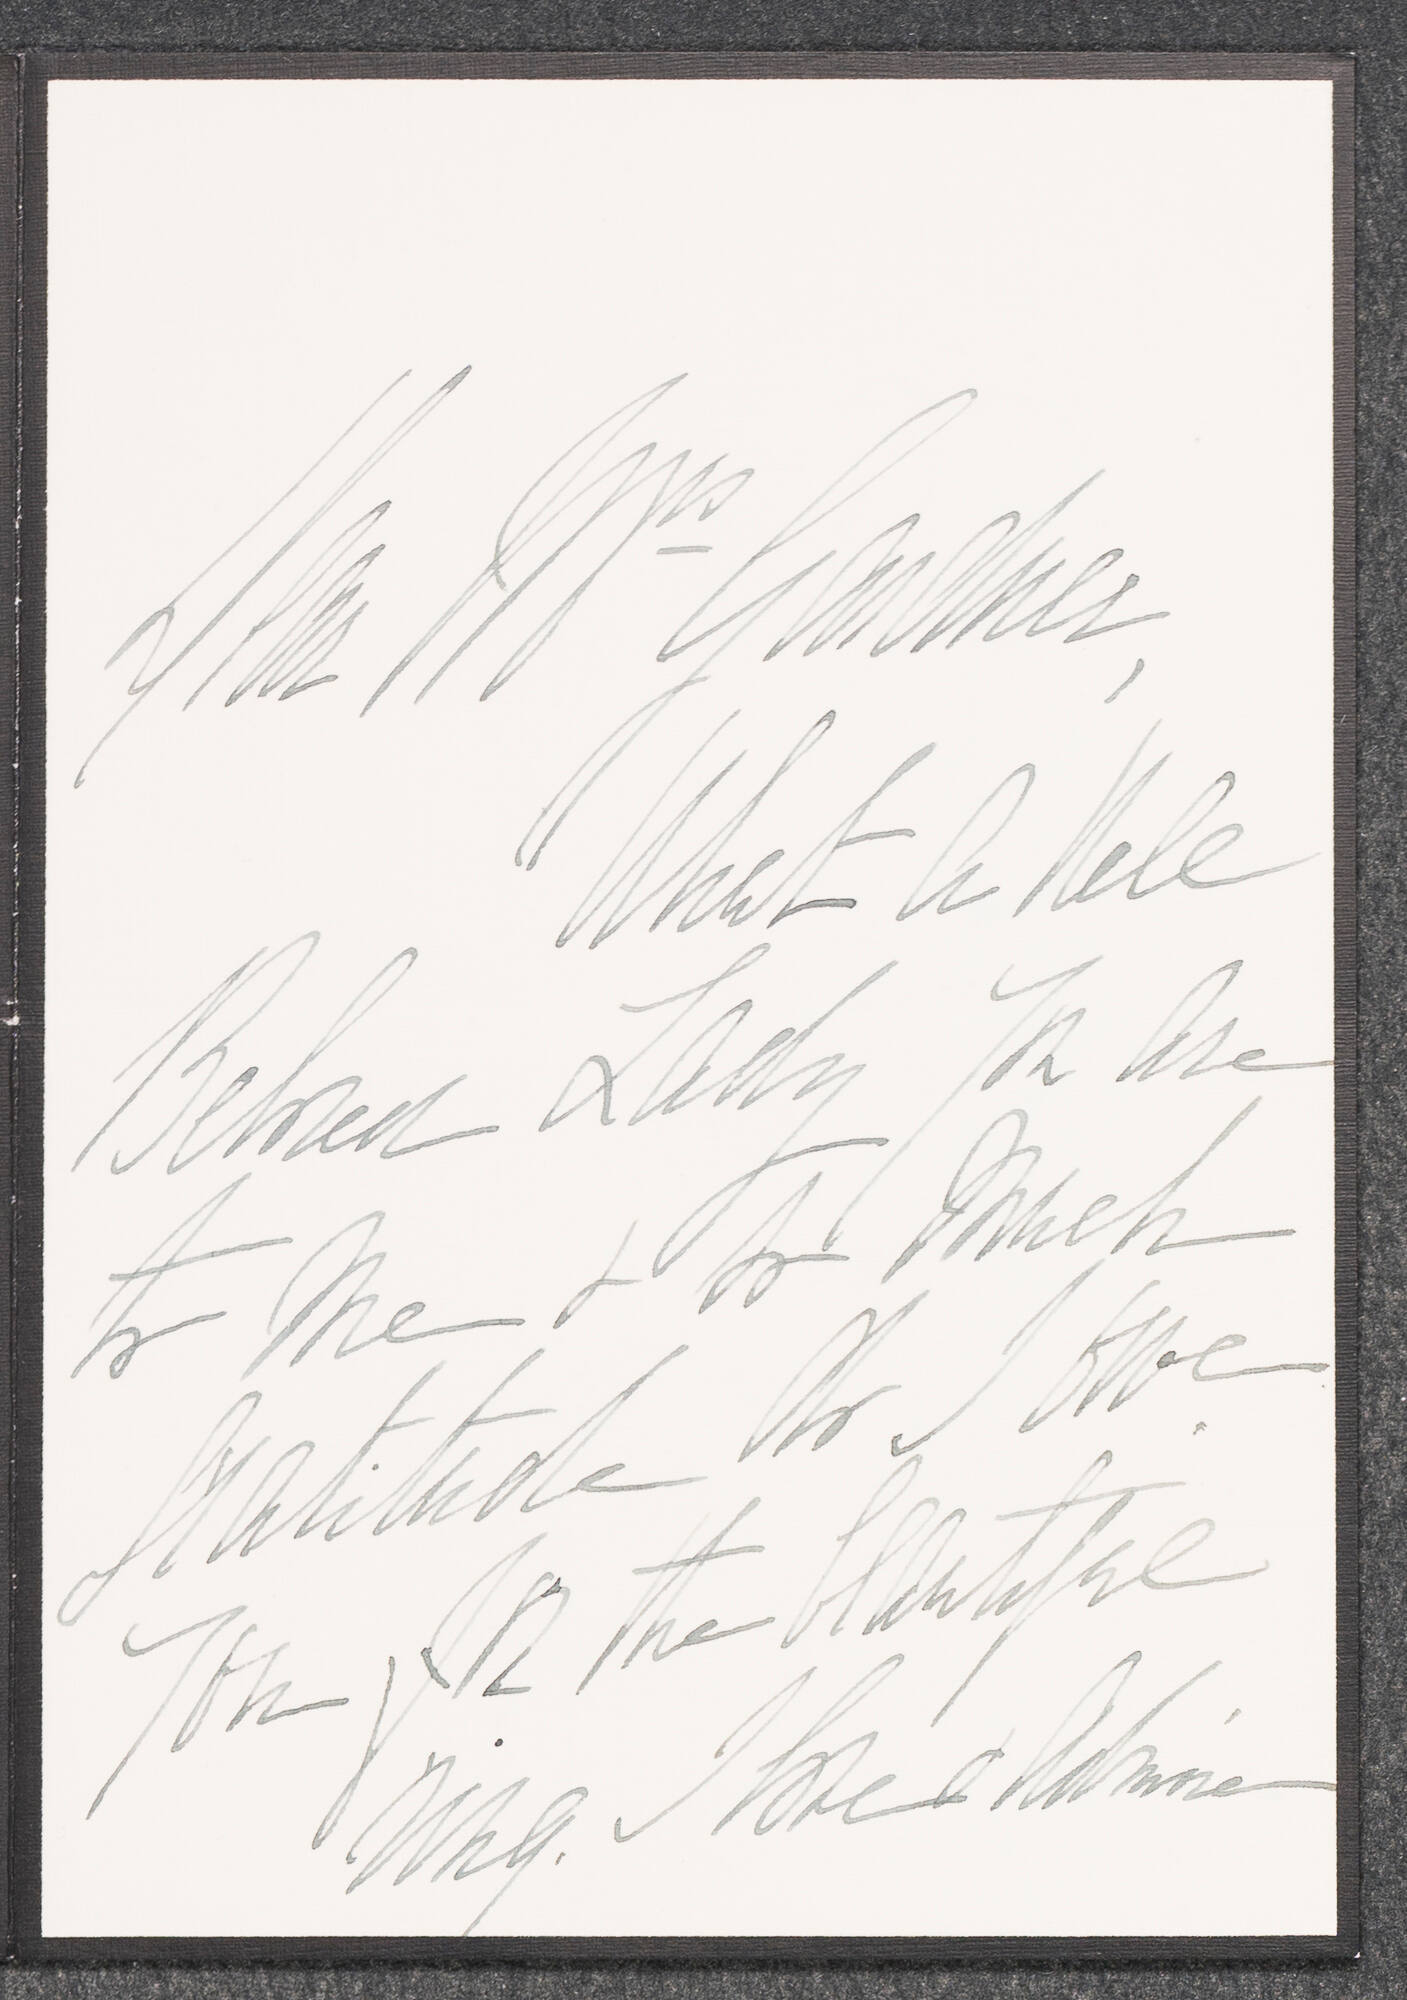 Dear Mrs Gardner,
What a Dear
Beloved Lady you are
to me & to much
Gratitude do I owe
you for the beautiful
ring. I love & Admire